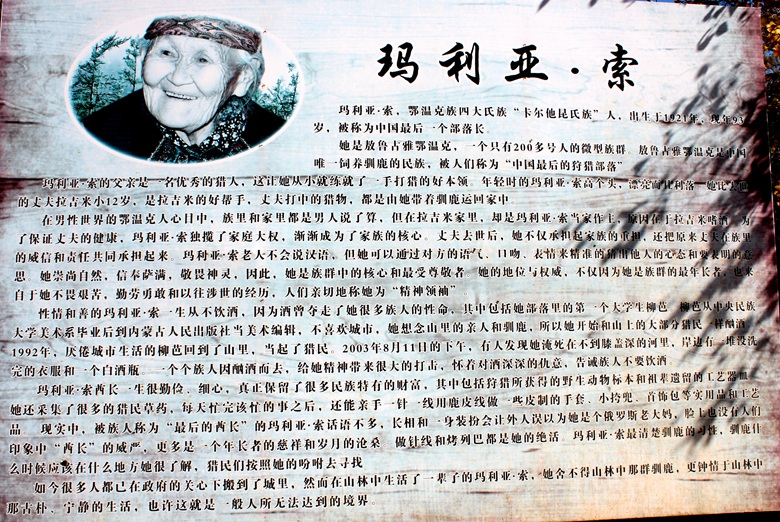 玛利亚·索
玛利亚·索，鄂温克族四大氏族“卡尔他昆氏族”人，出生于1921年，现年93
岁，被称为中国最后一个部落长。
她是敖鲁古雅鄂温克，一个只有200多号人的微型族群。敖鲁古雅鄂温克是中国
唯一饲养驯鹿的民族，被人们称为“中国最后的狩猎部落”
玛利亚·索的父亲是一名优秀的猎人，这让她从小就练就了一手打猎的好本领。年轻时的玛利亚·索高个头，漂亮而且利落 她比去世
的丈夫拉吉米小12岁，是拉吉米的好帮手，丈夫打中的猎物，都是由她带着驯鹿运回家中
在男性世界的鄂温克人心目中，族里和家里都是男人说了算，但在拉吉米家里，却是玛利亚·索当家作主，原因在于拉吉米嗜酒 为
了保证丈夫的健康，玛利亚·索独揽了家庭大权，渐渐成为了家族的核心。丈夫去世后，她不仅承担起家族的重担，还把原来丈夫在族里
的威信和责任共同承担起来 玛利亚·索老大不会说汉语，但她可以通过对方的语气、口吻、表情来精准的猜出他人的心态和要表明的意
思 她崇尚自然，信奉萨满，敬畏神灵，因此，她是族群中的核心和最受尊敬者 她的地位与权威，不仅因为她是族群的最年长者，也来
自于她不畏艰苦，勤劳勇敢和以往涉世的经历，人们亲切地称她为“精神领袖”
性情和善的玛利亚·索一生从不饮酒，因为酒曾夺走了她很多族人的性命，其中包括她部落里的第一个大学生柳芭 柳芭从中央民族
大学美术系毕业后到内蒙古人民出版社当美术编辑，不喜欢城市，她想念山里的亲人和驯鹿，所以她开始和山上的大部分猎民一样酗酒
1992年，厌倦城市生活的柳芭回到了山里，当起了猎民。2003年8月11日的下午，有人发现她淹死在不到膝盖深的河里，岸边有一堆没洗
完的衣服和一个白酒瓶 一个个族人因酗酒而去，给她精神带来很大的打击，怀着对酒深深的仇意，告诫族人不要饮酒
玛利亚·索酋长一生很勤俭、细心，真正保留了很多民族特有的财富，其中包括狩猎所获得的野生动物标本和祖辈遗留的工艺器皿
她还采集了很多的猎民草药，每天忙完该忙的事之后，还能亲手一针一线用鹿皮线做一些皮制的手套、小挎兜、首饰包等实用品和工艺
品 现实中，被族人称为“最后的酋长”的玛利亚·索话语不多，长相和一身装扮会让外人误以为她是个俄罗斯老大妈，脸上也没有人们
印象中“酋长”的威严，更多是一个年长者的慈祥和岁月的沧桑 做针线和烤列巴都是她的绝活 玛利亚·索最清楚驯鹿的习性，驯鹿什
么时候应该在什么地方她很了解，猎民们按照她的吩咐去寻找
如今很多人都已在政府的关心下搬到了城里，然而在山林中生活了一辈子的玛利亚·索，她舍不得山林中那群驯鹿，更钟情于山林中
那古朴、宁静的生活，也许这就是一般人所无法达到的境界。